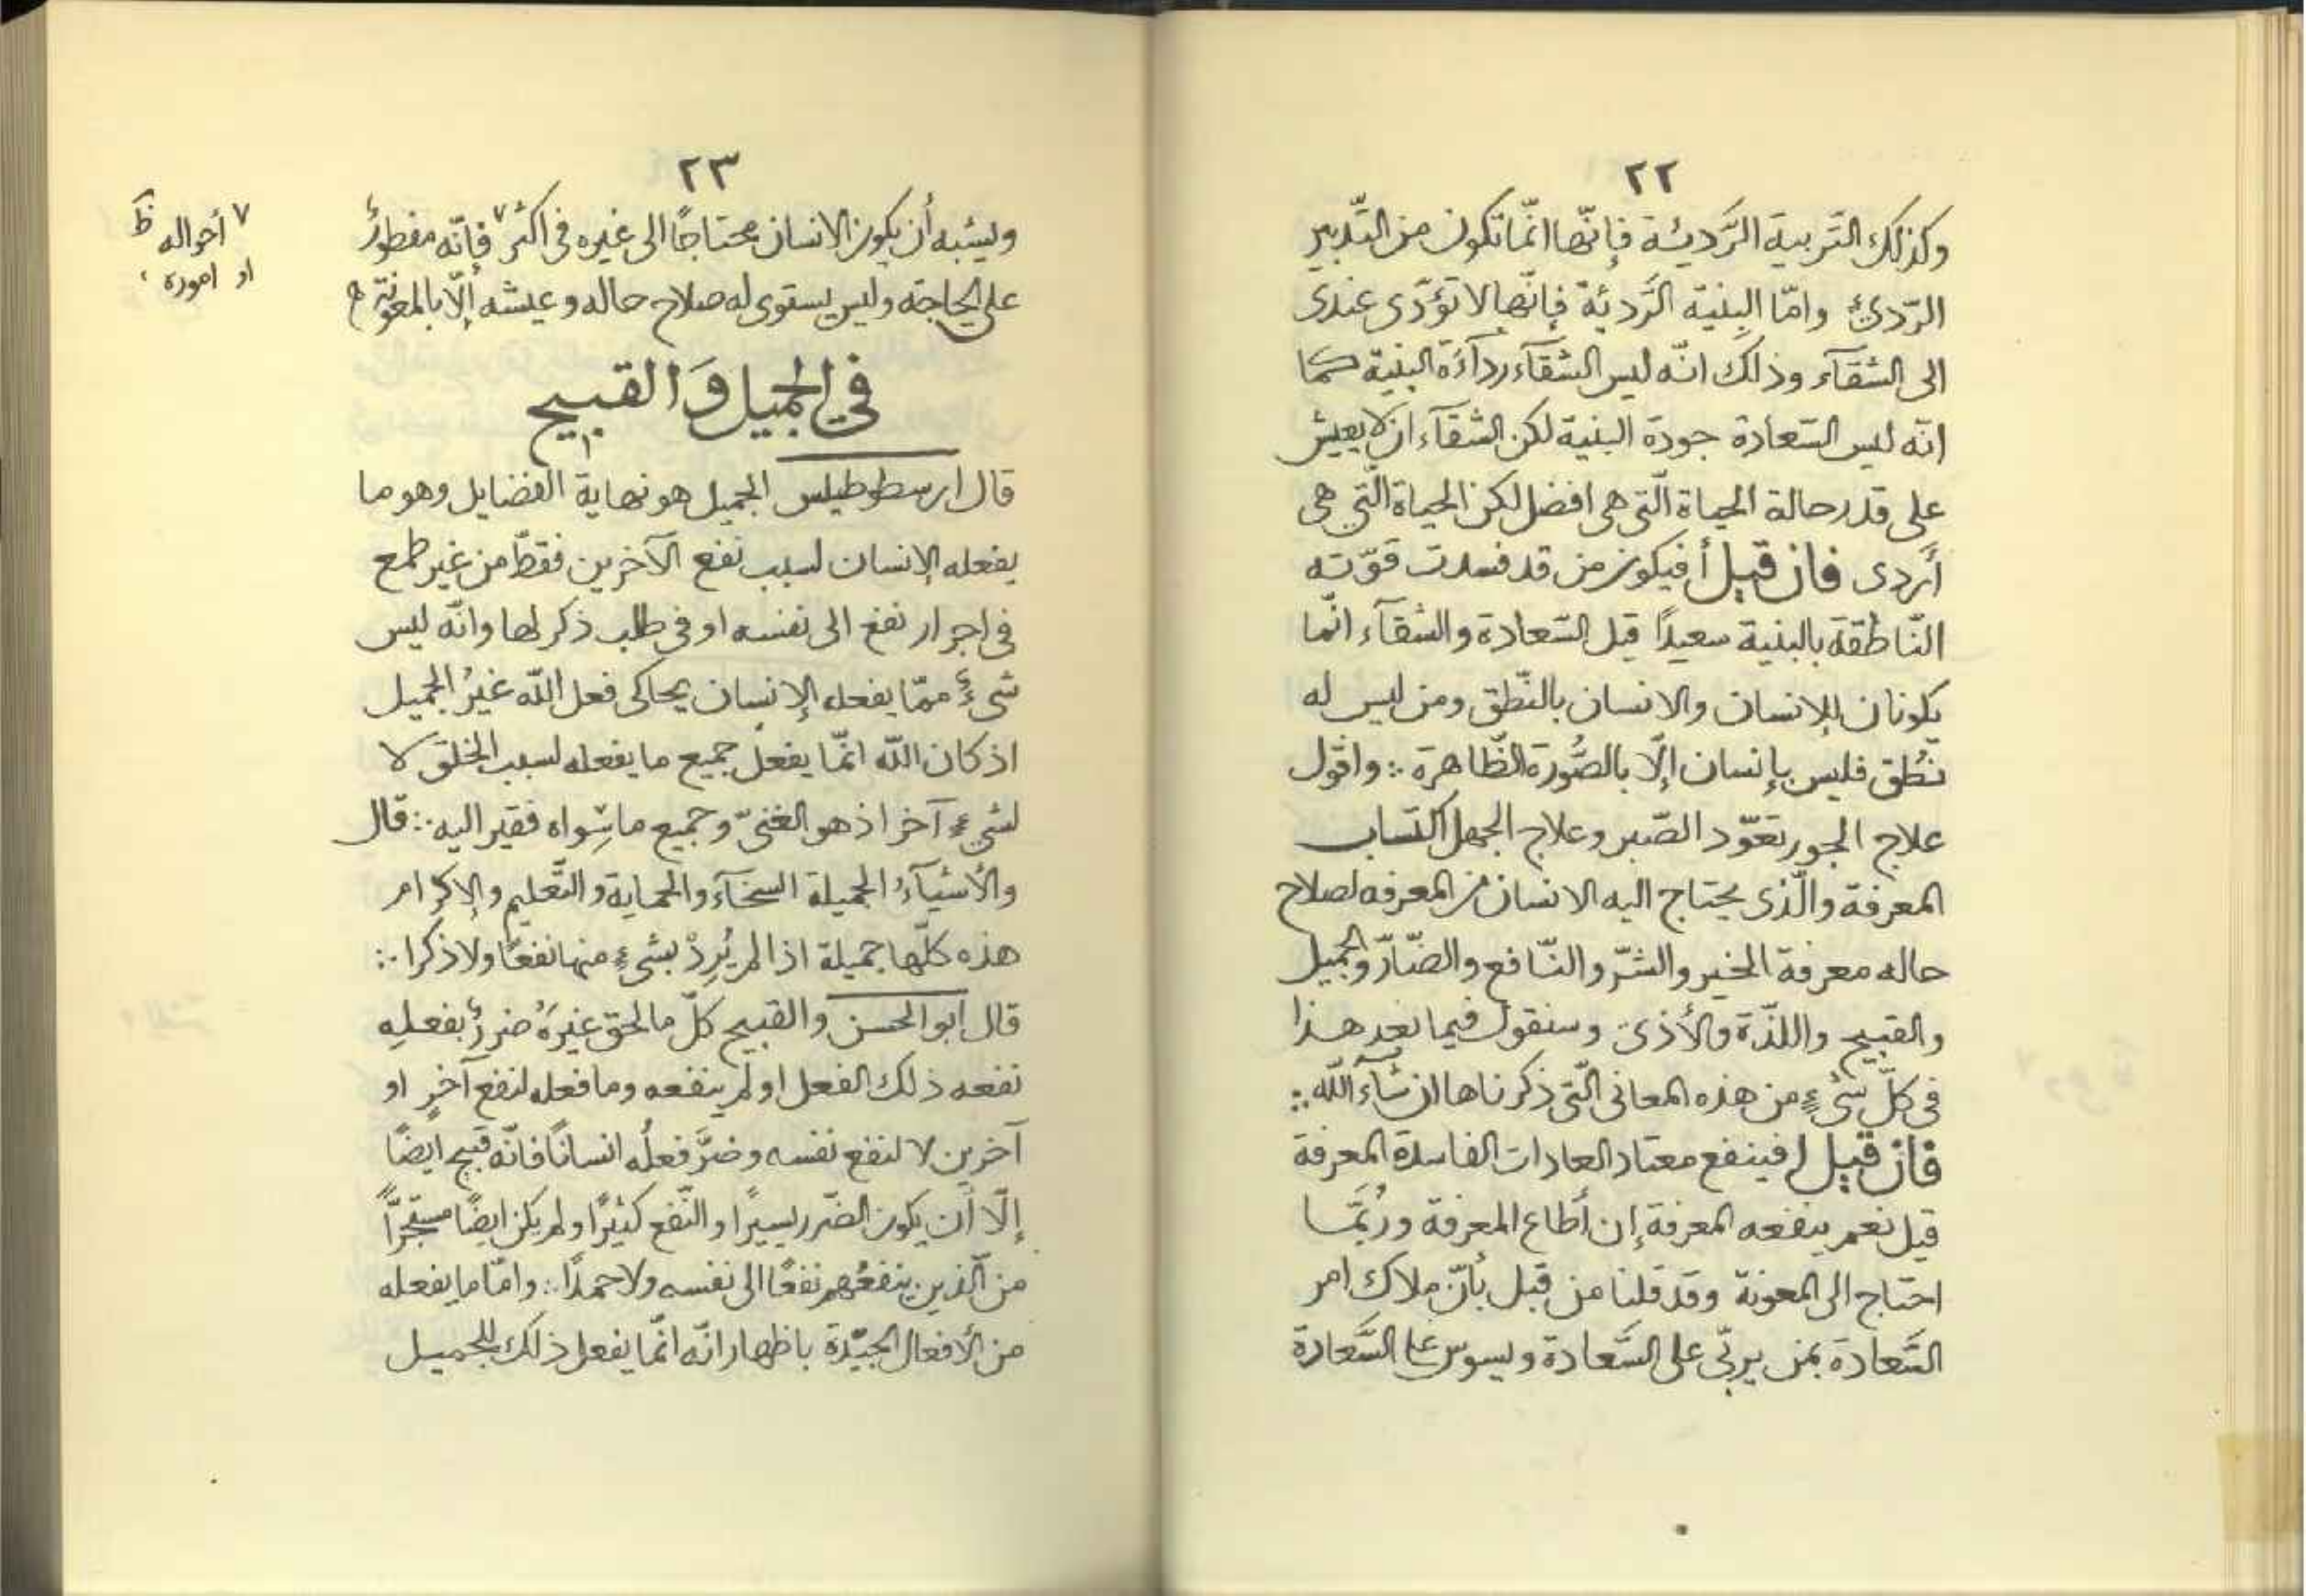 ٢٢
وكذلك التّربية الرَّديئة فإنّها انّما تكون من التّدبير
الرّدىء وامّا البِنية الرَّديّة فإنّها لا تؤدّى عندى
الى الشقآء وذلك انّه ليس الشقآء ردآءَة البنية كما
انّه ليس السّعادة جودة البنية لكن الشقآء ان لا يعيش
على قدر حالة الحياة الّتى هى افضل لكن الحياة الّتى هى
أردى فان قيل أفيكون من قد فسدت قوّته
النّاطقة بالبنية سعيدًا قيل السّعادة والشقآء انّما
يكونان للإنسان والانسان بالنّطق ومن ليس له
نُطق فليس بإنسان إلّا بالصُّورة الظّاهرة ∴ واقول
علاج الجور تعوّد الصّبر وعلاج الجهل اكتساب
المعرفة والّذى يحتاج اليه الانسان من المعرفه لصلاح
حاله معرفة الخير والشرّ والنّافع والضّارّ والجميل
والقبيح واللذّة والأذى وسنقول فيما بعد هذا
فى كلّ شىءٍ من هذه المعانى الّتى ذكرناها ان شآء اللّه ∴
فان قيل افينفع معتاد العادات الفاسدة المعرفة
قيل نعم ينفعه المعرفة إن أطاع المعرفة ورُبّما
احتاج الى المعونة وقد قلنا من قبل بأنّ ملاك امر
السَّعادة بمن يربّى على السَّعادة ويسوس على السَّعادة
٢٣
ويشبه أن يكون الانسان محتاجًا الى غيره فى اكثر٧ فإنّه مفطورٌ
على الحاجة وليس يستوى له صلاح حاله وعيشه إلّا بالمعونة
٧ أحواله ظ
او اموره
في الجميل وَالقبيح
قال ارسطوطيلس الجميل هو نهاية الفضايل وهو ما
يفعله الإنسان لسبب نفع الآخرين فقطّ من غير طمع
فى اجرار نفع الى نفسه او فى طلب ذكر لها وانّه ليس
شىءٌ ممّا يفعله الإنسان يحاكى فعل اللّه غيرُ الجميل
اذ كان اللّه انّما يفعل جميع ما يفعله لسبب الخلق لا
لشىءٍ آخر اذ هو الغنىّ وجميع ما سِواه فقير اليه ∴ قال
والأشيآءُ الجميلة السخآء والحماية والتّعليم والإكرام
هذه كلّها جميلة اذا لم يُرِدْ بشىءٍ منها نفعًا ولا ذكرا ∴
قال ابو الحسن والقبيح كلّ ما لحق غيرَهُ ضررٌ بفعلِهِ
نفعه ذلك الفعل او لم ينفعه وما فعله لنفع آخرٍ او
آخرين لا لنفع نفسه وضرَّ فعلُه انسانًا فانّه قبيح ايضًا
إلّا أن يكون الضّرر يسيرًا والنّفع كثيرًا ولم يكن ايضًا مستجرًّا
من الّذين ينفعُهم نفعًا الى نفسه ولا حمدًا ∴ وامّا ما يفعله
من الأفعال الجيّدة باظهار انّه انّما يفعل ذلك للجميل